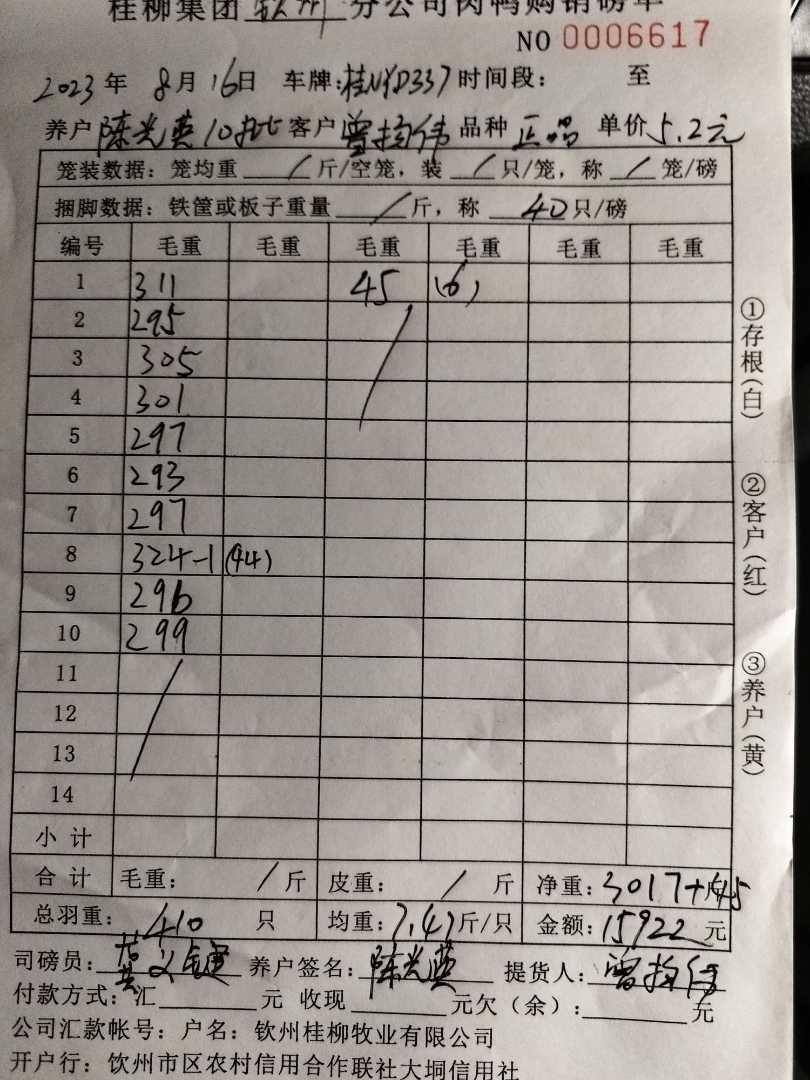 桂柳集团 钦州 分公司肉鸭购销磅单
NO 0006617
2023年 8月16日 车牌:桂NYD337 时间段: 至
养户 陈光英10批 客户 曾扬伟 品种 正品 单价 5.2元
笼装数据: 笼均重 / 斤/空笼, 装 / 只/笼, 称 / 笼/磅
捆脚数据: 铁筐或板子重量 / 斤, 称 40只/磅
编号 毛重 毛重 毛重 毛重 毛重 毛重
1 311 45 (6)
2 295
3 305
4 301
5 297
6 293
7 297
8 324-1 (44)
9 296
10 299
11
12
13
14
小 计
合 计 毛重: / 斤 皮重: / 斤 净重: 3017+45斤
总羽重: 410 只 均重: 7.47斤/只 金额: 15922元
司磅员: 养户签名: 陈光英 提货人: 曾扬伟
付款方式: 汇 元 收现 元欠(余): 元
公司汇款帐号: 户名: 钦州桂柳牧业有限公司
开户行: 饮州市区农村信用合作联社大垌信用社
①存根(白)
②客户(红)
③养户(黄)